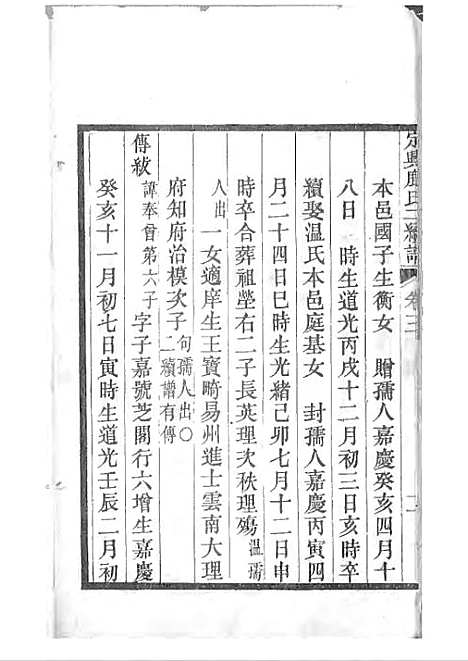 定興鹿氏二續譜 卷三
本邑國子生衡女 贈孺人嘉慶癸亥四月十
八日 時生道光丙戌十二月初三日亥時卒
續娶温氏本邑庭基女 封孺人嘉慶丙寅四
月二十四日巳時生光緒己卯七月十二日申
時卒合葬祖塋右二子長英理次秩理殤温孺
人出 一女適庠生王寶畸易州進士雲南大理
府知府治模次子句孺人出○二續譜有傳
傳紱諱奉曾第六子 字子嘉號芝閣行六增生嘉慶
癸亥十一月初七日寅時生道光壬辰二月初